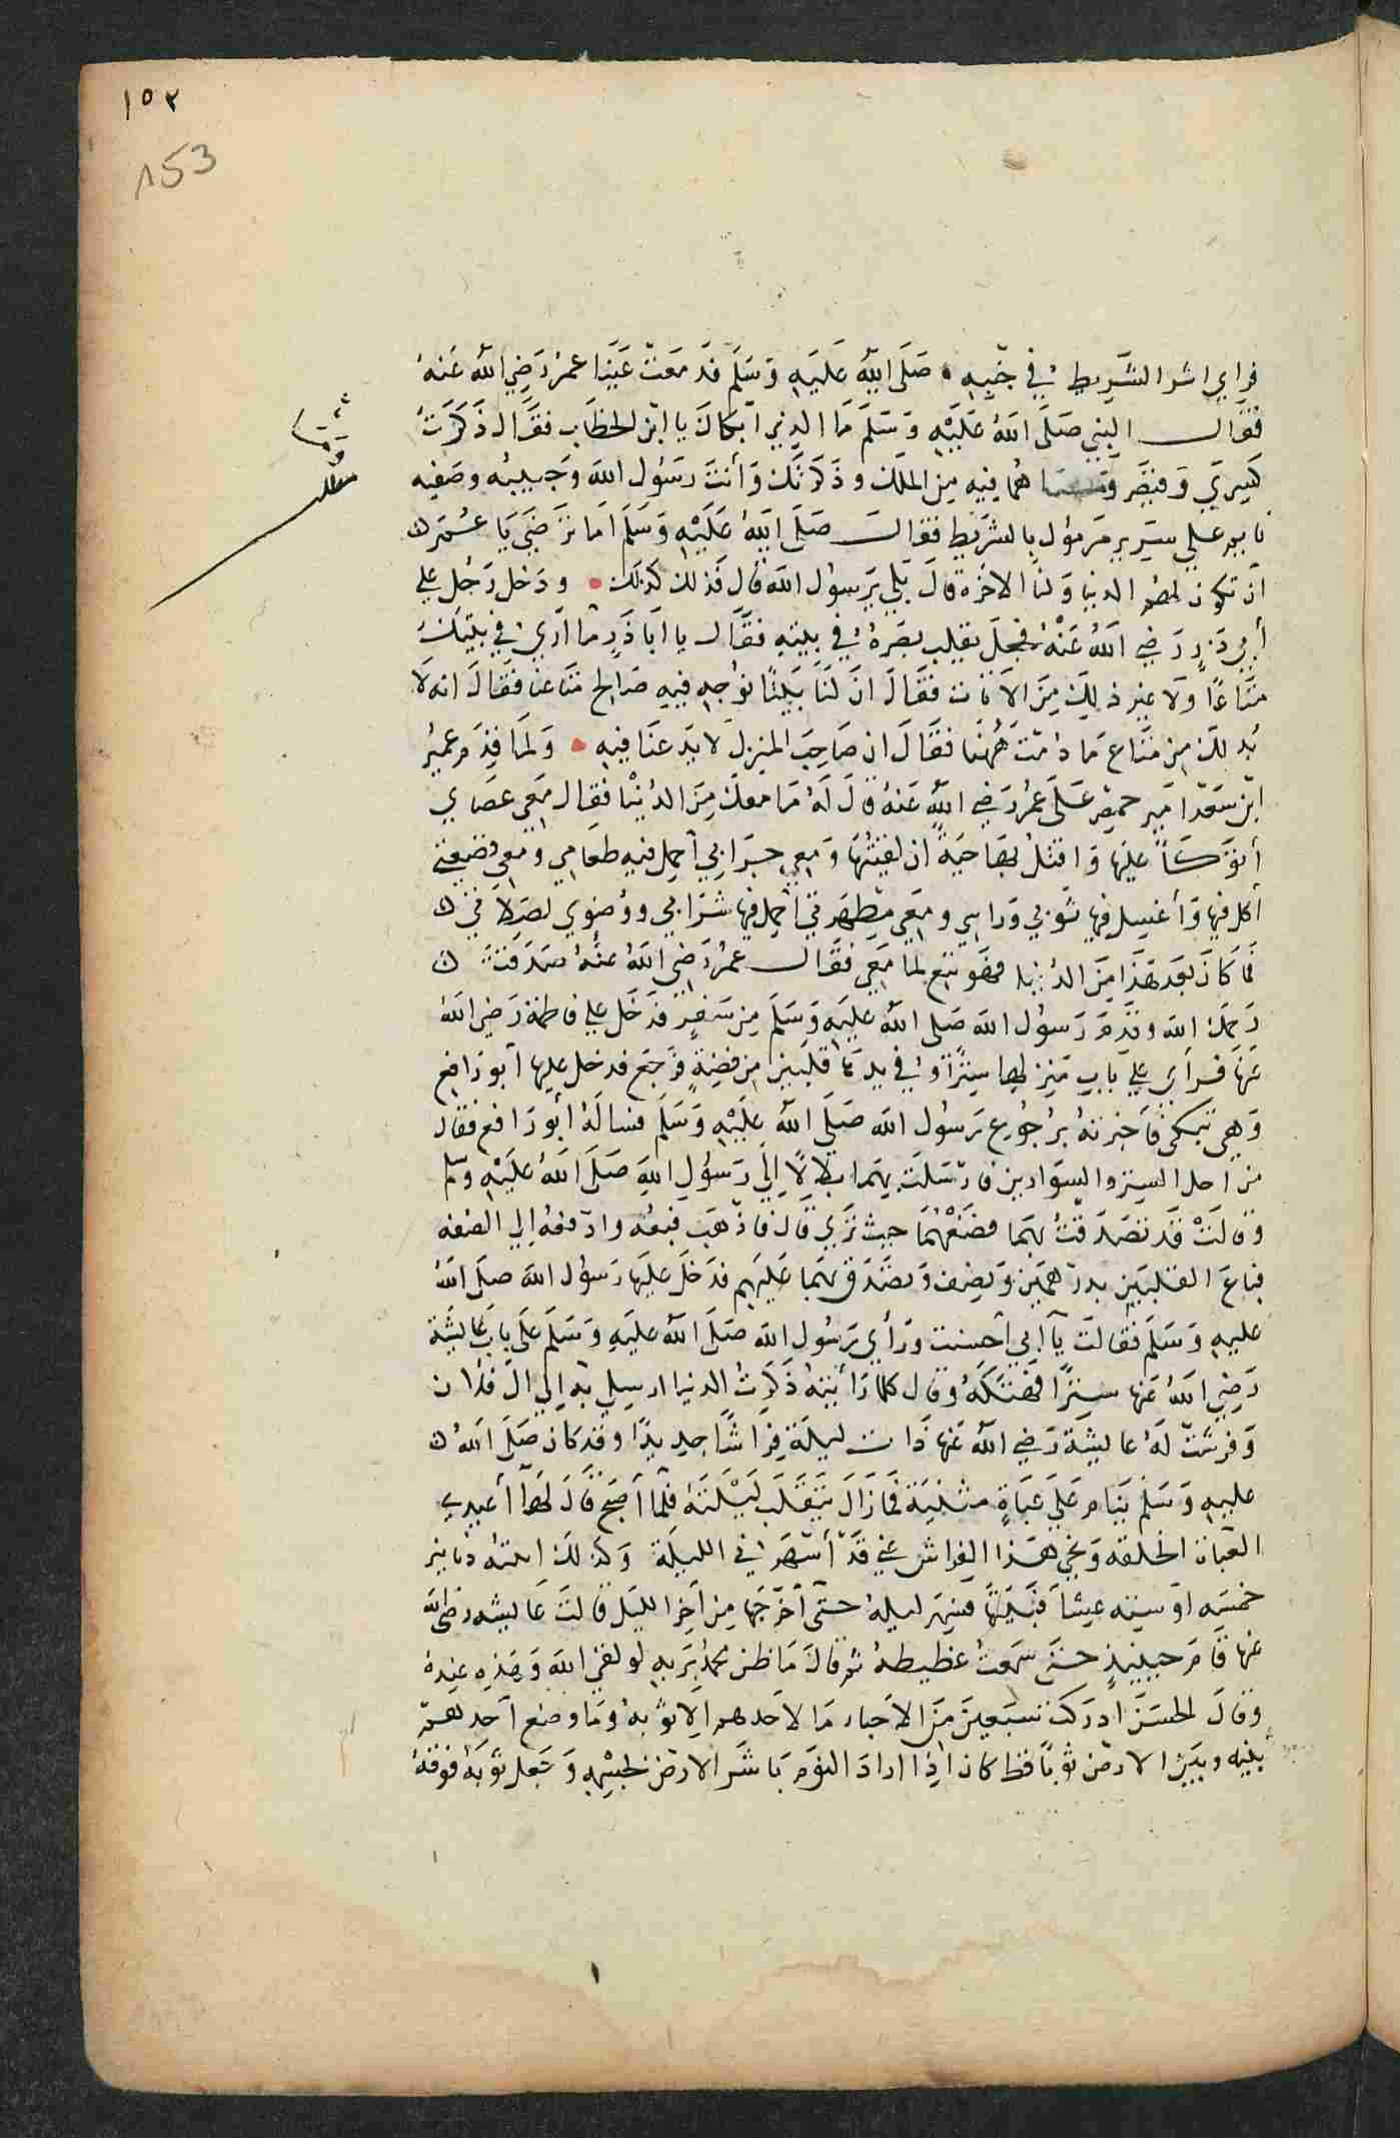 ١٥٢
153
فراي اثر الشريط في جنبه صَلَّى اللهُ عَلَيهِ وَسَلَّم فدمَعَتْ عَينا عمرُ رَضِيَ اللهُ عَنهُ
فقال النبي صَلَّى اللهُ عَلَيْهِ وَسَلَّمَ مَا الذي ابكاكَ يا ابْن الخطاب فقال ذَكَرْتُ
كِسرَي وَقيصَر وَمَا هُما فيه مِنَ الملك وذَكَرتك وَأنتَ رَسُول اللهِ وَحَبيبه وصَفيه
نايم علي سَرِير مَرمُول بالشريط فقال صَلَّى اللهُ عَلَيْهِ وَسَلَّمَ اَما ترضَي يَا عُمَر
اَن تكون لهم الدنيا وَلنا الاخرَة قالَ بَلي يَرسُول الله قال فذلك كذلك ودَخل رَجُل علي
أبي ذَرٍ رَضِيَ اللهُ عَنْهُ فجعلَ يقلب بصَرهُ في بيته فقال يا اَبا ذَرٍ ما اَرَي في بيتك
متَاعًا ولا غير ذلكَ مِنَ الاثاث فقَالَ انَّ لَنَا بَيتًا نوجه فيه صَالح متاعنا فقالَ انه لا
بُد لكَ مِن متاع مَا دُمْتَ هُهنا فقَالَ ان صَاحِبَ المنزل لا يدعنَا فيه وَلما قدِمَ عميرُ
ابْن سَعْد اَمير حمص عَلَى عمرُ رَضِيَ اللهُ عَنهُ قالَ لَهُ مَا معكَ مِنَ الدُنيْا فقال مَعِي عصَاي
أتوَكَأ عليها وَاقتل بها حيَةً ان لقيتُها وَمعِي جِرَابي أحمل فيه طعَامي ومَعي قصعتي
اكل فيها وَأغسِل فيها ثوبي وَراسي ومَعي مِطهَرتي احمل فيها شرَابي ووُضوي لصَلاتي
فما كَانَ بَعد هَذَا مِنَ الدُنيا فهو تبع لما مَعي فقال عمرُ رَضِيَ اللهُ عَنْهُ صَدَقتَ
رَحمكَ الله وقدِمَ رَسُول الله صَلى اللهُ عليهِ وَسَلَّم مِن سَفرٍ فدَخَل علي فاطمة رَضِيَ اللهُ
عَنها فرَأي علي بابِ منزلها سِترًا وَفي يديها قلبين مِن فضةٍ فرَجَع فدخل عليها اَبو رَافع
وَهي تبكي فاَخبرتهُ برُجُوع رَسُول الله صَلَّى اللهُ عَلَيْهِ وَسَلَّم فسالهُ أبو رَافع فقال
من اجل الستر والسوارين فارسَلَت بهما بلالاً اِلَي رَسُولِ اللهِ صَلَّى اللهُ عَلَيْهِ وسَلم
وَقالتْ قَد تصَدقْتُ بهما فضَعْهُمَا حيث تري قالَ فاذهَب فبعْه وادفعهُ الي الصفه
فباعَ القلبَين بدرهمَين وَنِصف وَتصَدق بهما عَليهِم فدَخَلَ علَيهَا رَسُول الله صلَى اللهُ
عليهِ وَسَلَّمَ فقالت يا ابي اَحسنت ورَأي رَسُول الله صَلَّى اللهُ عليهِ وَسَلَّم عَلَى باب عَايشة
رَضِيَ اللهُ عَنها سِترًا فهتكَهُ وقال كلما رَأيتهُ ذكَرتُ الدنيا ارسِلي به اِلي اَل فلان
وَفرشتْ لَهُ عايشة رَضِيَ اللهُ عَنها ذَات ليلَة فِرَاشًا جديدًا وقد كان صَلَّى اللهُ
عليهِ وَسَلم يَنام علَي عبَاةٍ مثنية فمازَالَ يتقَلب ليْلَته فلما أصبَح قالَ لهَا أعيدي
العَباة الخلقه وَنحي هذا الفراش عني قدْ أسْهَرني الليلة وَكذلك اتته دنانير
خمسَه اَو ستة عِشاً فبيتَّها فسَهر ليلهُ حتي اَخرجَها مِن اَخر الليل قالَت عَايشه رضي الله
عنها فَنامَ حينيذٍ حتي سَمعتُ غطيطهُ ثم قالَ مَا ظن محمد بربهِ لو لقي الله وَهَذِهِ عِندهُ
وقالَ الحَسَن ادرَكت سَبعين مِنَ الاخيار مَا لاحدهم الا ثوبهُ وَما وضَع احَدهم
بينه وبَينَ الارض ثوبًا قط كان اِذا ارادَ النوم بَاشر الارضَ بجسْمِه وَجعل ثوبهُ فوقهُ